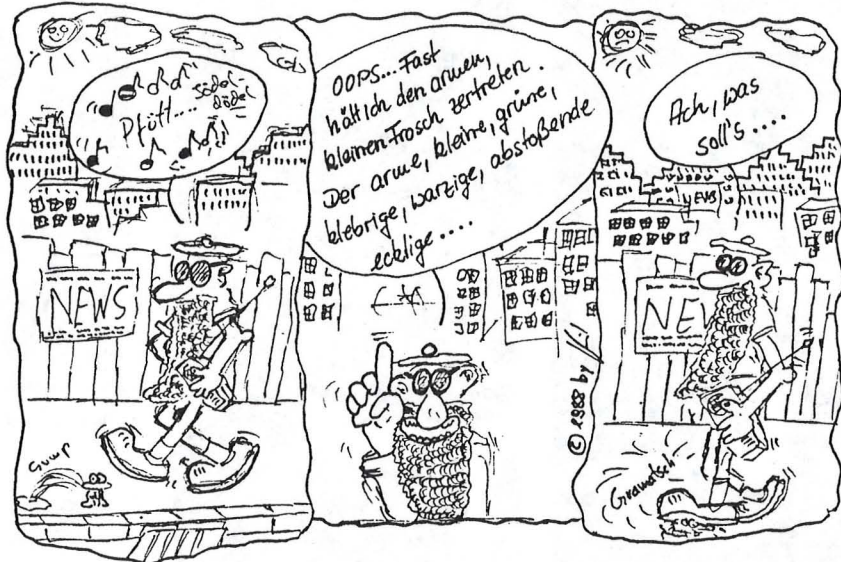 Pfütt....
södel-
dödel
NEWS
Gump
OOPS... Fast
hätt ich den armen,
kleinen Frosch zertreten.
Der arme, kleine, grüne,
klebrige, warzige, abstoßende
ecklige....
© 1988 by
Ach, was
soll's....
EWS
NE
Gramatsch